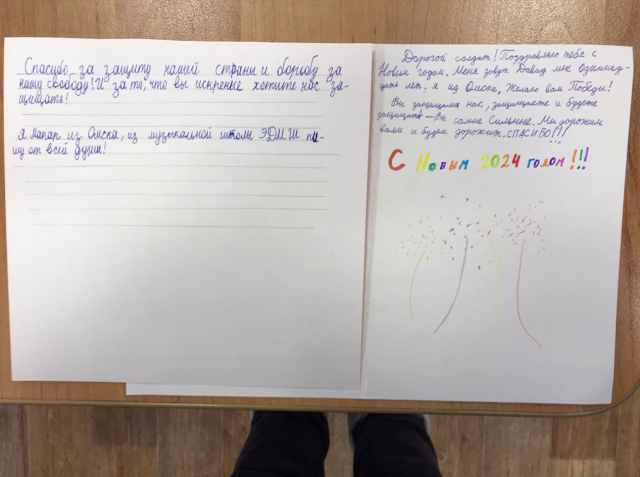 Спасибо за защиту нашей страны и борьбу за
нашу свободу! И за то, что вы искренне хотите нас за-
щищать!
Я Макар из Омска, из музыкальной школы ЭДМШ пи-
шу от всей души!
Дорогой солдат! Поздравляю тебя с
Новым годом. Меня зовут Давид мне Одиннад-
цать лет, я из Омска, Желаю вам Победы!
Вы защищали нас, защищаете и будете
защищать - Вы самые Сильные. Мы дорожим
вами и будем дорожить. СПАСИБО!!!
С Новым 2024 годом!!!